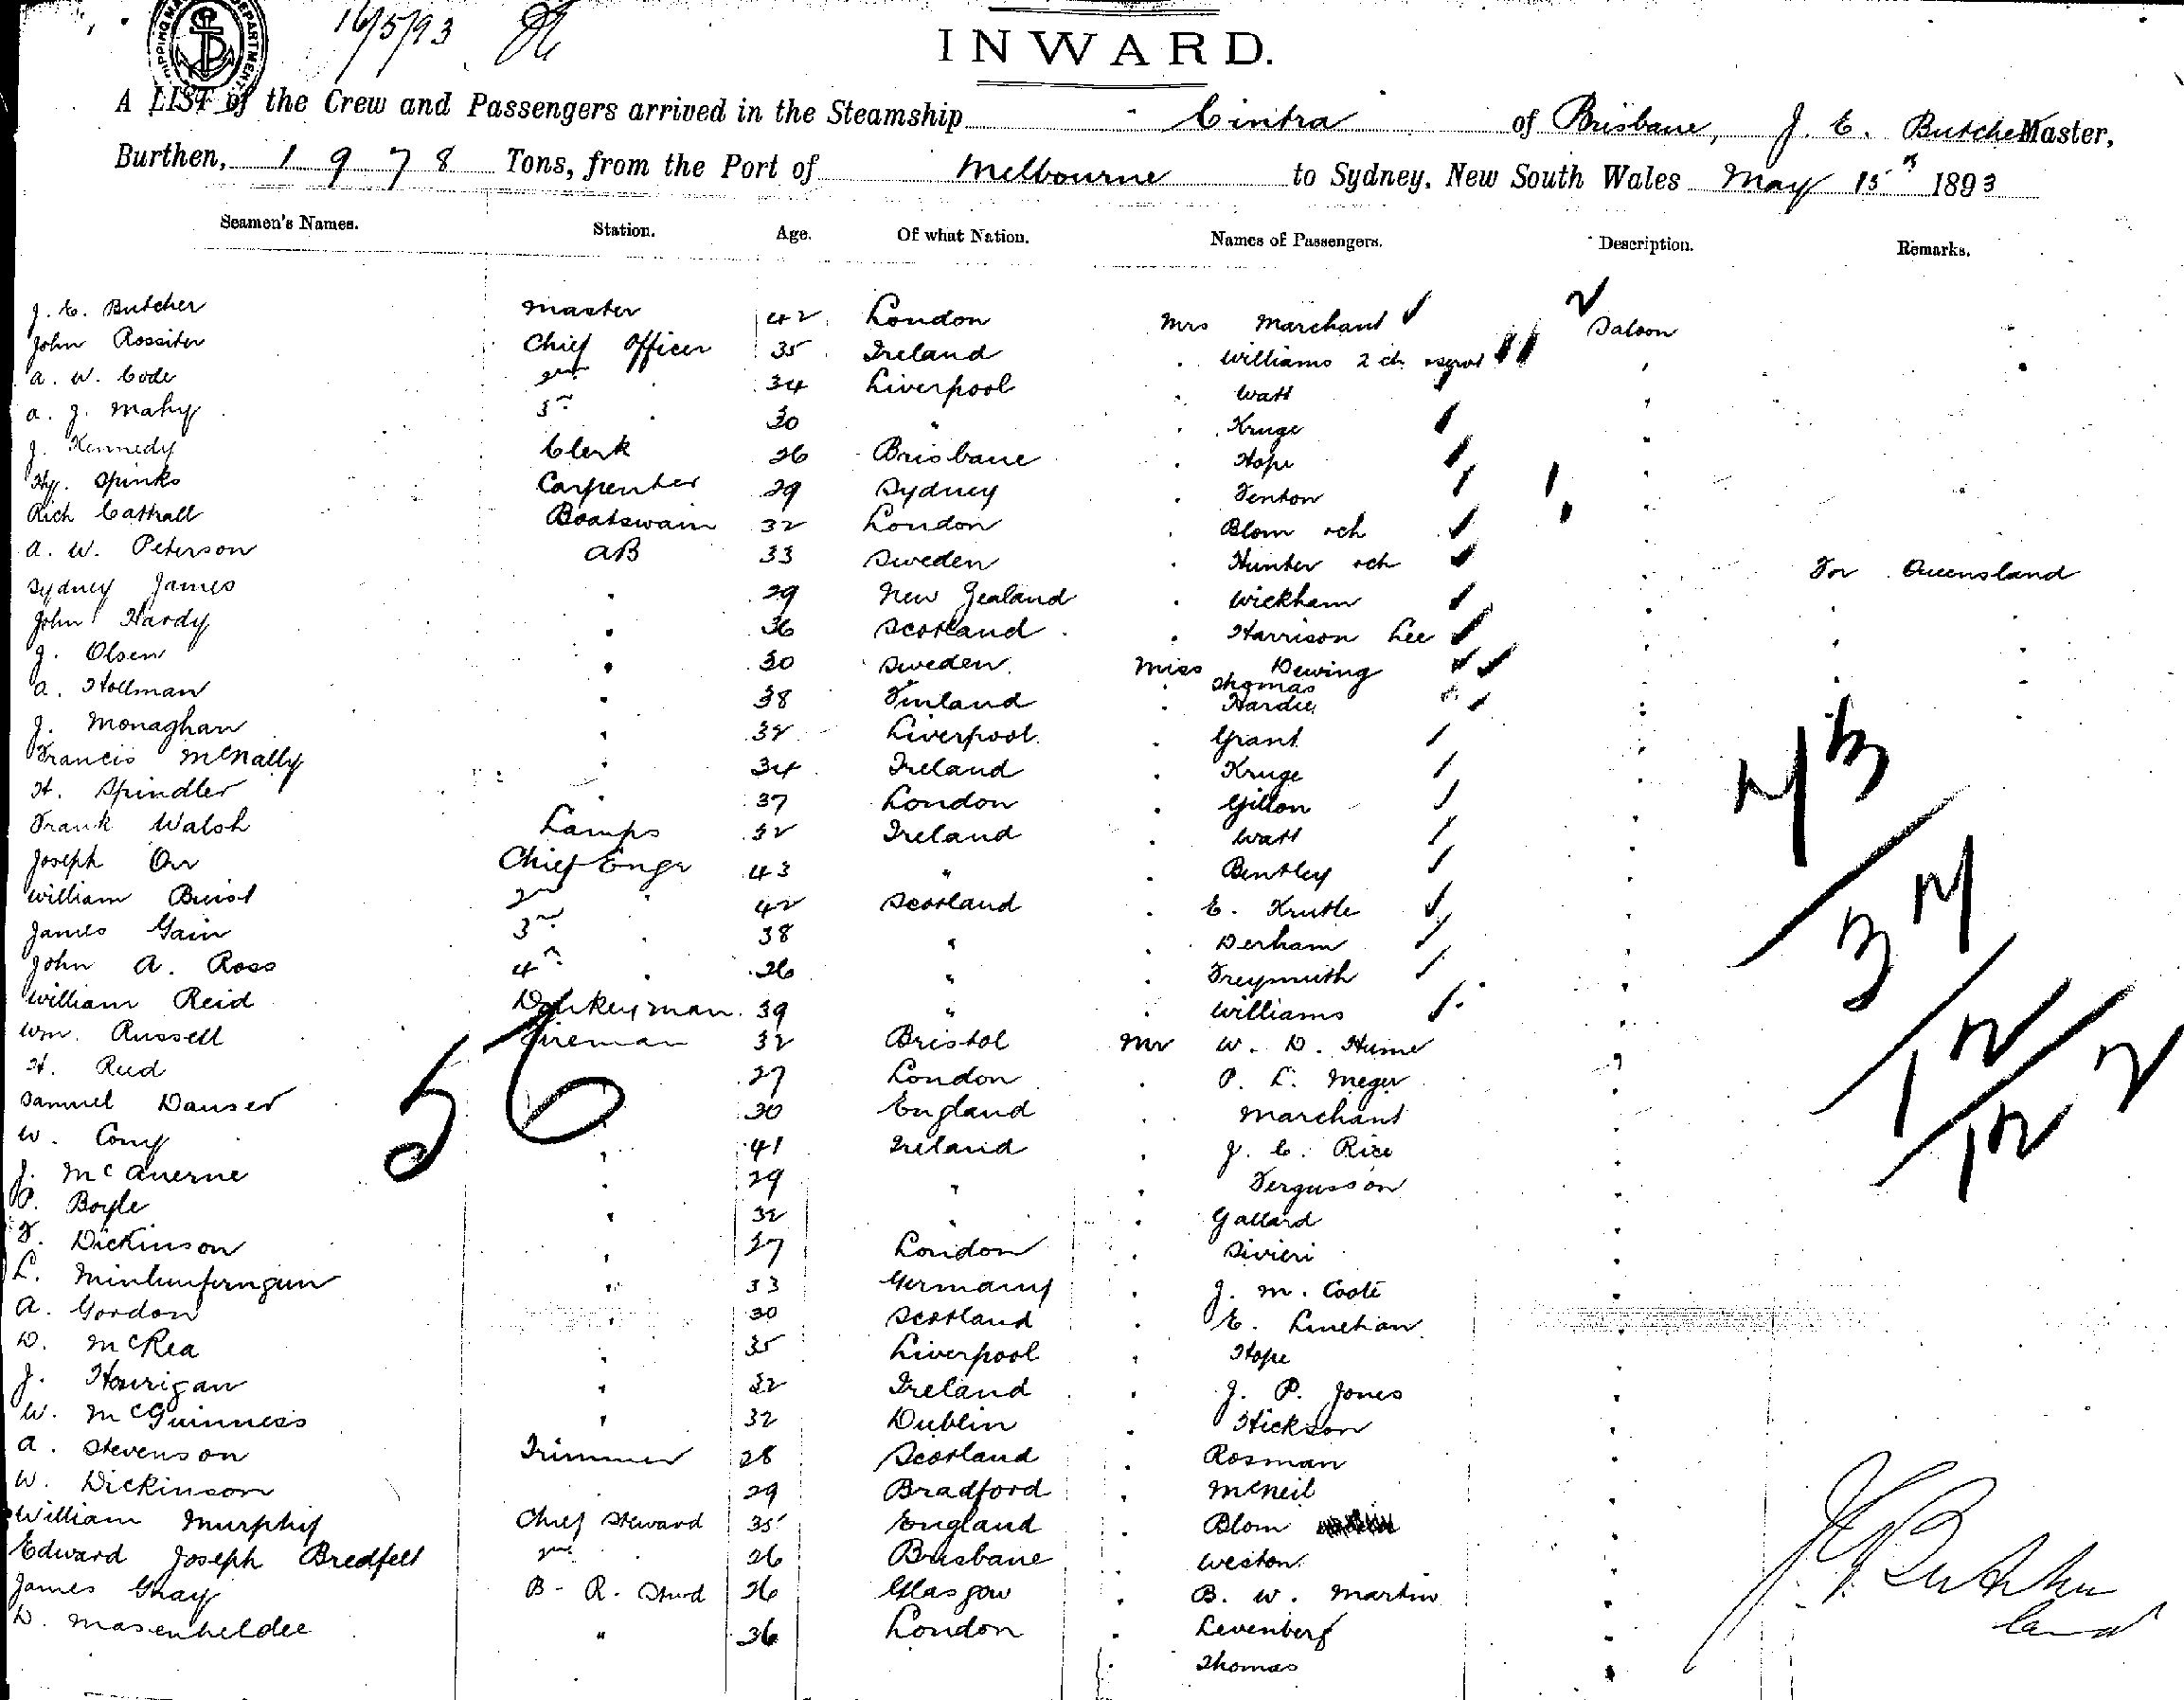 16/5/93
INWARD.
A LIST of the Crew and Passengers arrived in the Steamship Cintra of Brisbane, J. C. Butcher Master,
Burthen, 1978 Tons, from the Port of Melbourne to Sydney, New South Wales May 15th 1893
Seamen's Names. Station. Age. Of what Nation. Names of Passengers. Description. Remarks.
J. C. Butcher Master 42 London Mrs Marchant Saloon
John Rossiter Chief Officer 35 Ireland . Williams 2 ch
A. W. Code 2nd . 34 Liverpool . Watt
A. J. Mahy 3rd . 30 " . Kruge
J. Kennedy Clerk 26 Brisbane . Hope
Hy. Spinks Carpenter 29 Sydney . Fenton
Rich Cattrall Boatswain 32 London . Blom & ch
A. W. Peterson AB 33 Sweden . Hunter & ch For Queensland
Sydney James . 29 New Zealand . Wickham
John Hardy . 36 Scotland . Harrison Lee
J. Olsen . 30 Sweden Miss Dewing
. Thomas
A. Hollman . 38 Finland . Hardie
J. Monaghan . 32 Liverpool . Grant
Francis McNally . 34 Ireland . Kruge
H. Spindler . 37 London . Gillon
Frank Walsh Lamps 32 Ireland . Watt
Joseph Orr Chief Engr 43 " . Bentley
William Buist 2nd . 42 Scotland . E. Krutle
James Gain 3rd . 38 " . Derham
John A. Ross 4th . 26 " . Freymuth
William Reid Donkeyman 39 " . Williams
Wm. Russell Fireman 32 Bristol Mr W. D. Hume
H. Reid . 27 London . P. L. Meger
Samuel Dauser . 30 England . Marchant
W. Cony . 41 Ireland . J. C. Rice
J. McAnerne . 29 " . Fergusson
P. Boyle . 32 " . Gallard
F. Dickinson . 27 London . Sivieri
L. . 33 Germany . J. M. Coote
A. Gordon . 30 Scotland . E. Linehan
D. McRea . 35 Liverpool . Hope
J. Hourigan . 32 Ireland . J. P. Jones
W. McGuinness . 32 Dublin . Hickson
A. Stevenson Trimmer 28 Scotland . Rosman
W. Dickinson 29 Bradford . McNeil
William Murphy Chief Steward 35 England . Blom
Edward Joseph Bredfelt 2nd . 26 Brisbane . Weston
James Gray B. R. Stwd 26 Glasgow . B. W. Martin
D. Masenheldee " 36 London . Levenberg
. Thomas
56